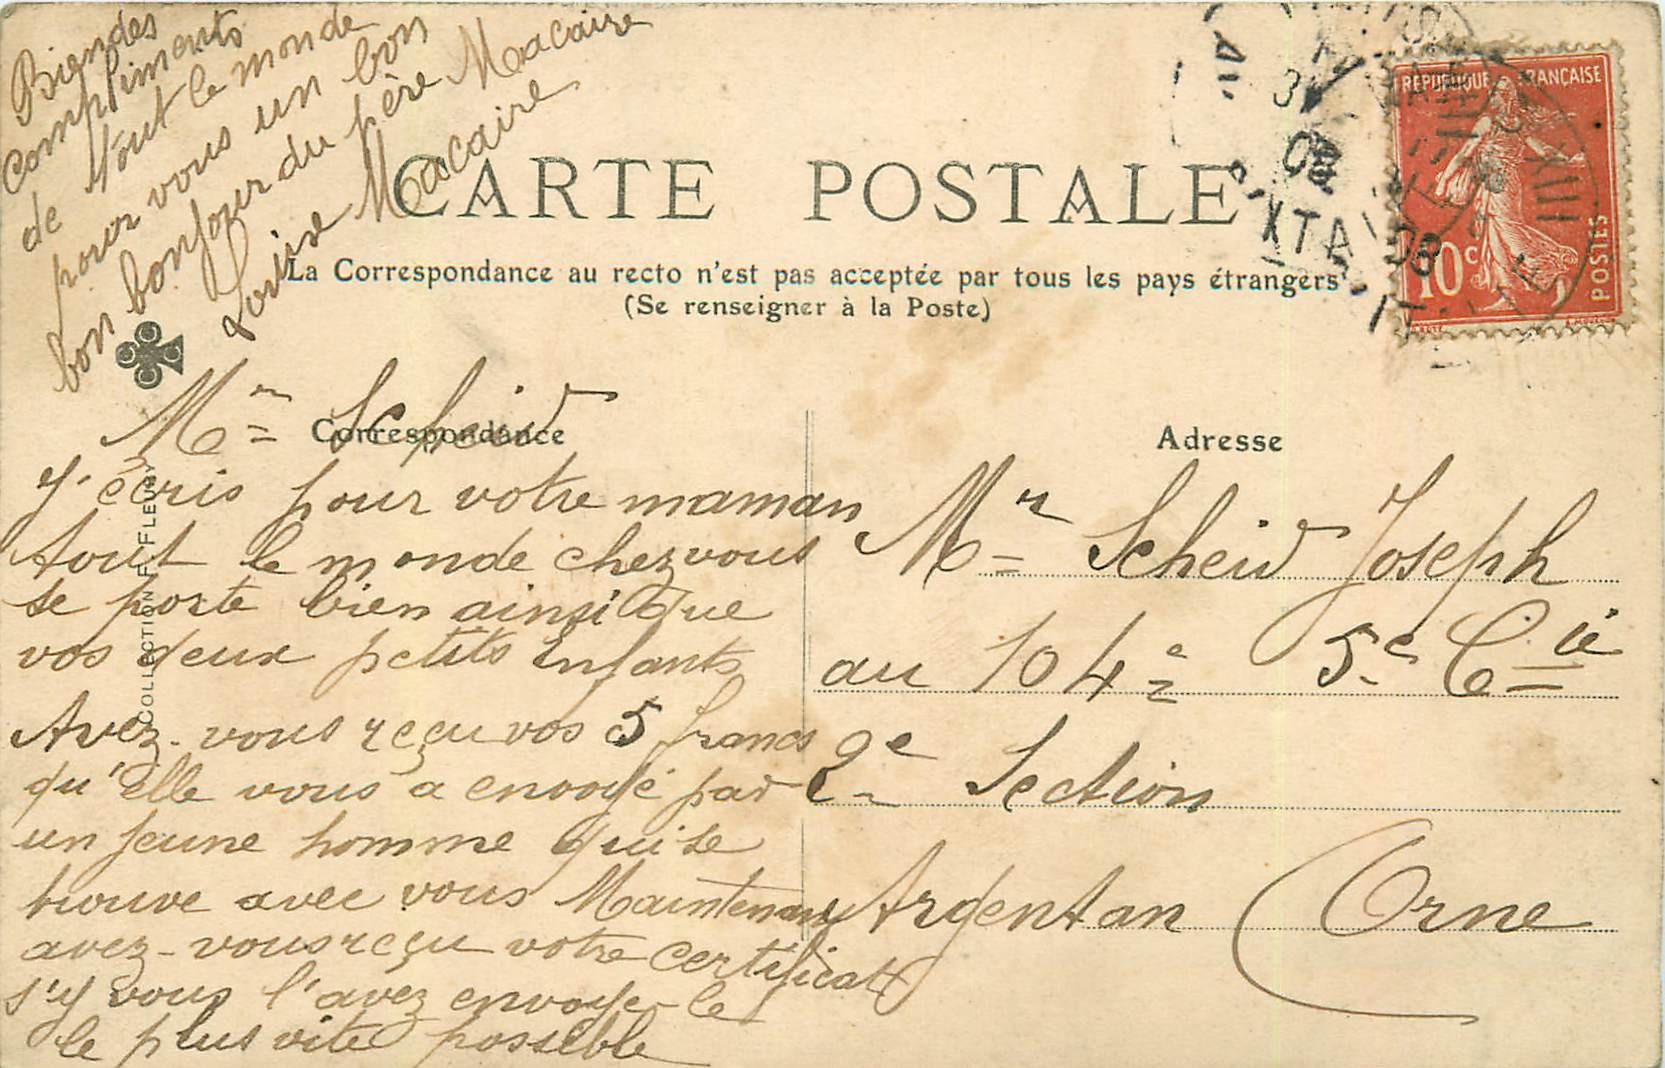 Biendes
compliments
de tout le monde
pour vous un bon
bon bonjour du père Macaire
Louise Macaire
CARTE POSTALE
La Correspondance au recto n'est pas acceptée par tous les pays étrangers
(Se renseigner à la Poste)
REPUBLIQUE FRANÇAISE
10c
POSTES
XIII
08
Correspondance
Mr Scheid
J'écris pour votre maman
tout le monde chez vous
se porte bien ainsi que
vos deux petits enfants
Avez-vous reçu vos 5 francs
qu'elle vous a envoyé par
un jeune homme qui se
trouve avec vous Maintenant
avez-vous reçu votre certificat
s'y vous l'avez envoyer le
le plus vite possible
COLLECTION F. FLEURY
Adresse
Mr Scheid Joseph
au 104e 5e Cie
2e Section
Argentan Orne